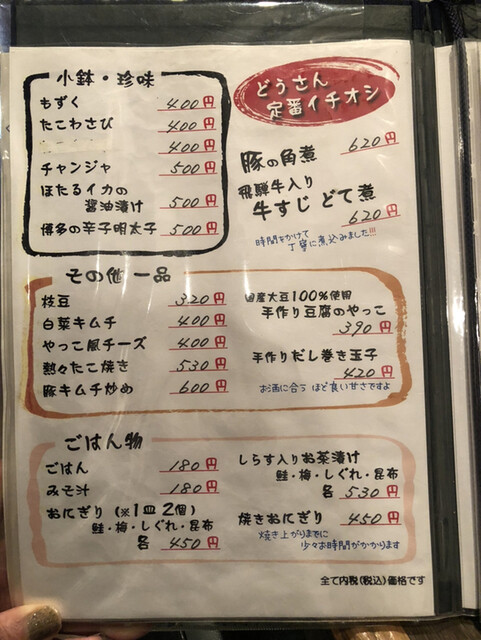 小鉢・珍味
もずく 400円
たこわさび 400円
400円
チャンジャ 500円
ほたるイカの
醤油漬け 500円
博多の辛子明太子 500円
どうさん
定番イチオシ
豚の角煮 620円
飛騨牛入り
牛すじ どて煮
620円
時間をかけて
丁寧に煮込みました!!!
その他 一品
枝豆 320円
白菜キムチ 400円
やっこ風チーズ 400円
熱々たこ焼き 530円
豚キムチ炒め 600円
国産大豆100%使用
手作り豆腐のやっこ
390円
手作りだし巻き玉子
420円
お酒に合う ほど良い甘さですよ
ごはん物
ごはん 180円
みそ汁 180円
おにぎり (※1皿 2個)
鮭・梅・しぐれ・昆布
各 450円
しらす入りお茶漬け
鮭・梅・しぐれ・昆布
各 530円
焼きおにぎり 450円
焼き上がりまでに
少々お時間がかかります
全て内税(税込)価格です